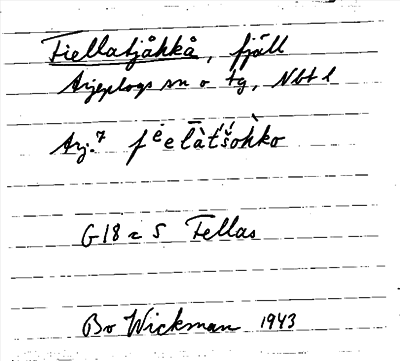 Fiellatjåhkå, fjäll
Arjeplogs sn o tg, Nbt l
Arj.7 fėelā̀t́š́oh̀ko
G18 = S Fellas
Bo Wickman 1943